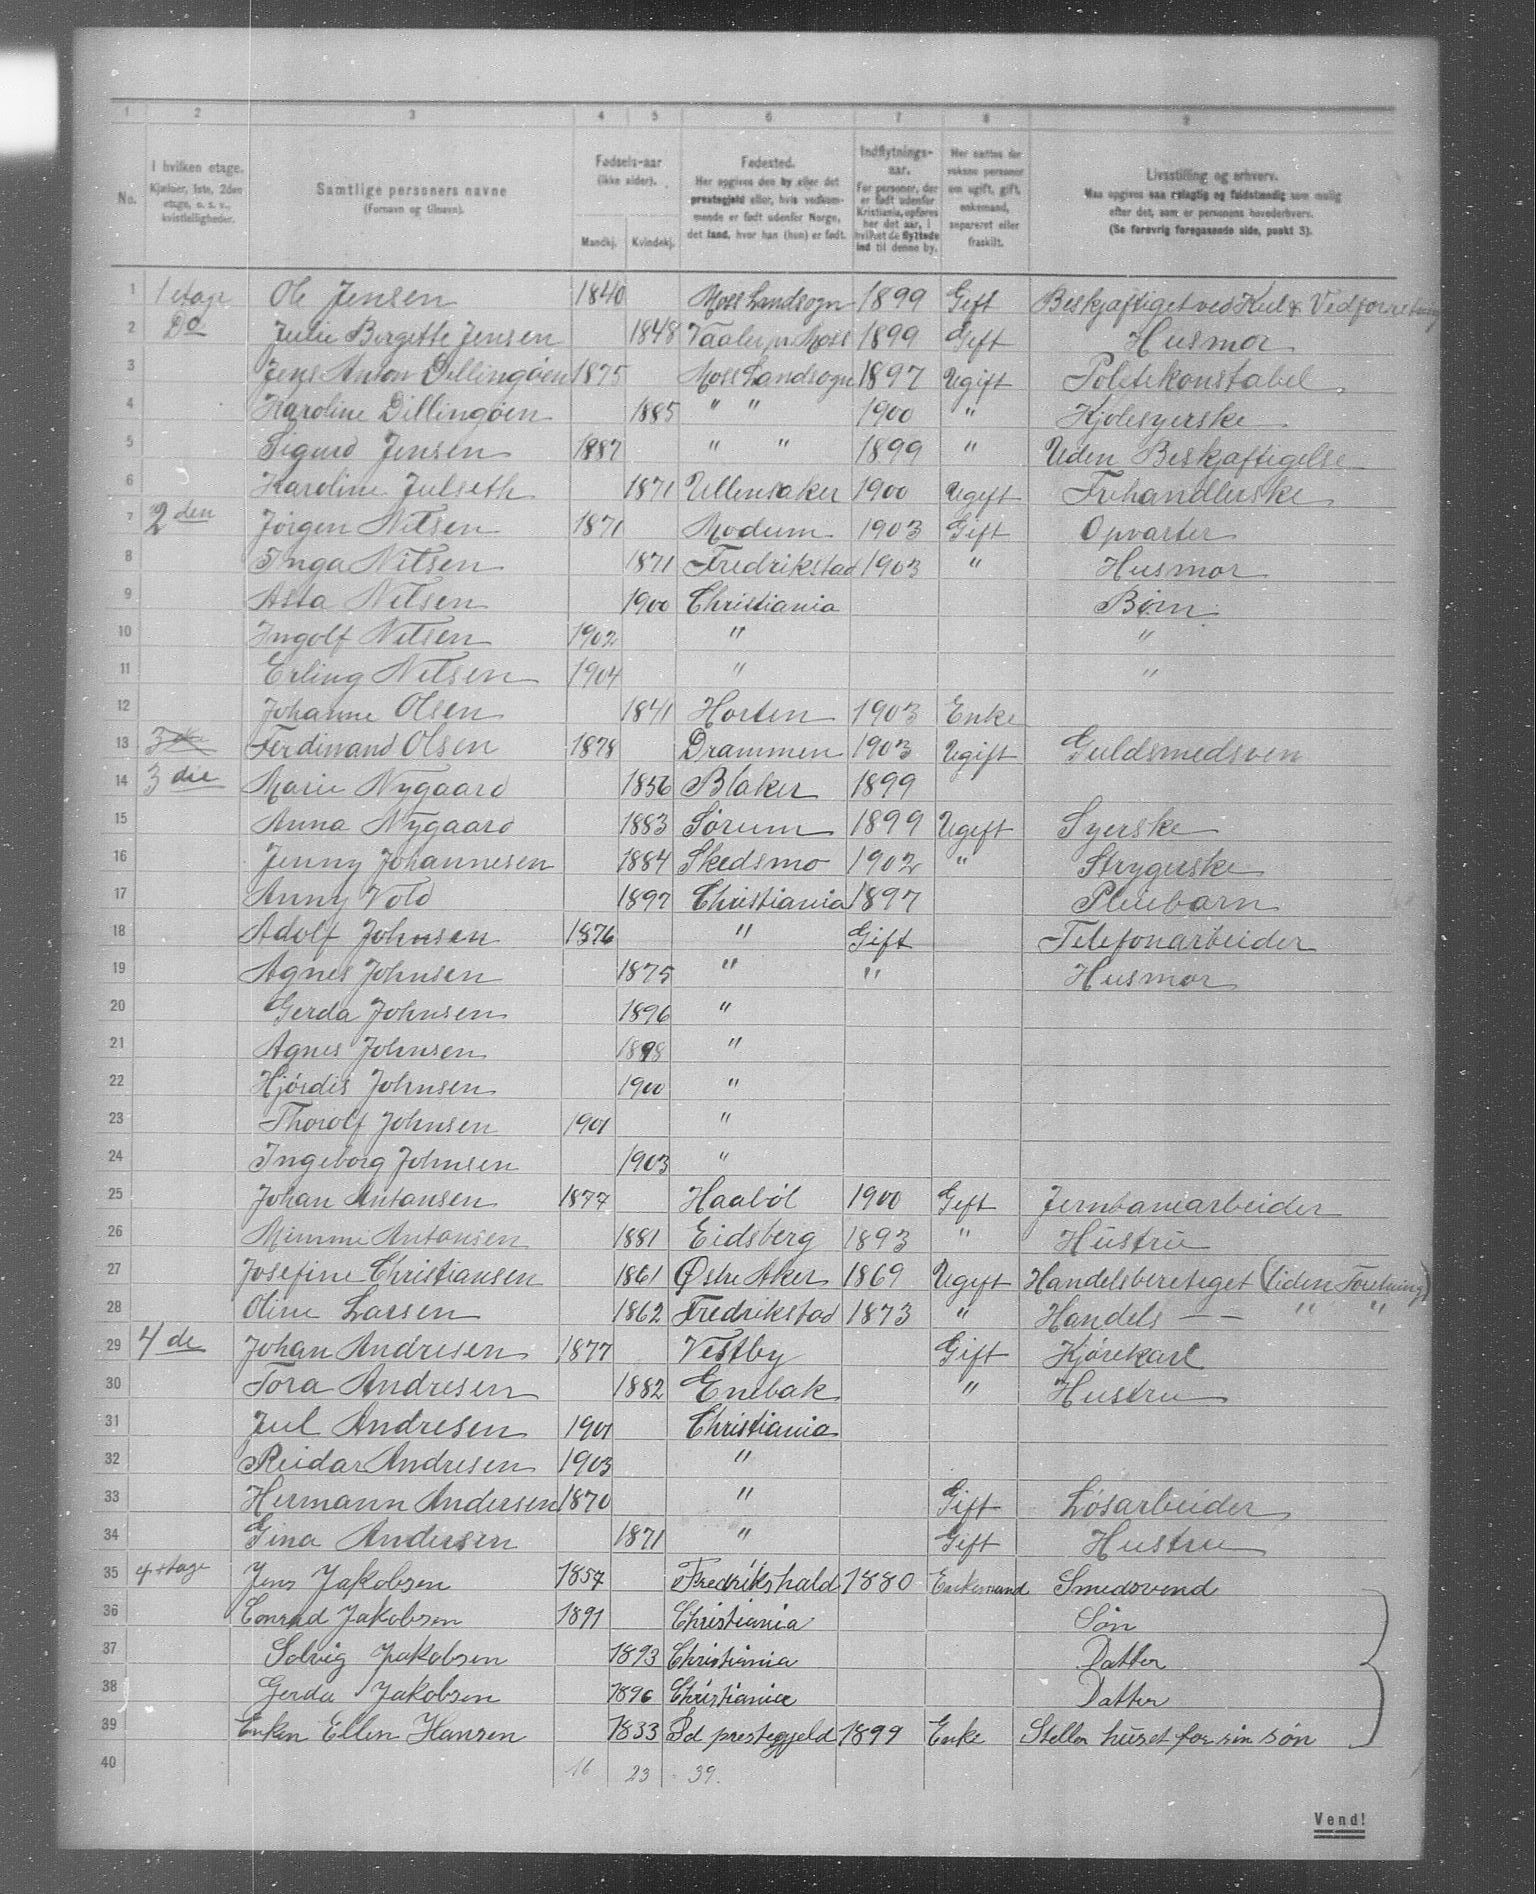 1 2 3 4 5 6 7 8 9
No. I hvilken etage. Kjælder, 1ste, 2den etage, o. s. v., kvistleiligheder. Samtlige personers navne (Fornavn og tilnavn). Fødsels-aar (ikke alder). Mandkj. Kvindekj. Fødested. Her opgives den by eller det prestegjeld eller, hvis vedkommende er født udenfor Norge, det land, hvor han (hun) er født. Indflytnings-aar. For personer, der er født udenfor Kristiania, opføres her det aar, i hvilket de flyttede ind til denne by. Her sættes for voksne personer om ugift, gift, enkemand, separeret eller fraskilt. Livsstilling og erhverv. Maa opgives saa nøiagtig og fuldstændig som mulig efter det, som er personens hovederhverv. (Se forøvrig foregaaende side, punkt 3).
1 1 etage Ole Jensen 1840 Moss Landsogn 1899 Gift Beskjæftiget ved Kul & Vedforretning
2 Do Julie Birgitte Jensen 1848 Vaaler pr. Moss 1899 Gift Husmor
3 Jens Anton Dillingøen 1875 Moss Landsogn 1897 Ugift Politikonstabel
4 Karoline Dillingøen 1885 " " 1900 " Kjolesyerske
5 Sigurd Jensen 1887 " " 1899 " Uden Beskjæftigelse
6 Karoline Julseth 1871 Ullensaker 1900 Ugift Frihandlerske
7 2den Jørgen Nilsen 1871 Modum 1903 Gift Opvarter
8 Inga Nilsen 1871 Fredrikstad 1903 " Husmor
9 Asta Nilsen 1900 Christiania Børn
10 Ingolf Nilsen 1902 " "
11 Erling Nilsen 1904 " "
12 Johanne Olsen 1841 Horten 1903 Enke
13 Ferdinand Olsen 1878 Drammen 1903 Ugift Guldsmedsven
14 3die Marie Nygaard 1856 Blaker 1899
15 Anna Nygaard 1883 Sørum 1899 Ugift Syerske
16 Jenny Johannesen 1884 Skedsmo 1902 " Strygerske
17 Anny Vold 1897 Christiania 1897 Pleiebarn
18 Adolf Johnsen 1876 " Gift Telefonarbeider
19 Agnes Johnsen 1875 " " Husmor
20 Gerda Johnsen 1896 "
21 Agnes Johnsen 1898 "
22 Hjørdis Johnsen 1900 "
23 Thorolf Johnsen 1901 "
24 Ingeborg Johnsen 1903 "
25 Johan Antonsen 1877 Haabøl 1900 Gift Jernbanearbeider
26 Mimmi Antonsen 1881 Eidsberg 1893 " Hustru
27 Josefine Christiansen 1861 Østre Aker 1869 Ugift Handelsberetiget (liden Foretning)
28 Oline Larsen 1862 Fredrikstad 1873 " Handels — — " "
29 4de Johan Andresen 1877 Vestby Gift Kjørekarl
30 Tora Andresen 1882 Enebak " Hustru
31 Jul Andresen 1901 Christiania
32 Reidar Andresen 1903 "
33 Hermann Andersen 1870 " Gift Løsarbeider
34 Gina Andersen 1871 " Gift Hustru
35 4 etage Jens Jakobsen 1857 Fredrikshald 1880 Enkemand Smedsvend
36 Conrad Jakobsen 1891 Christiania Søn
37 Solvig Jakobsen 1893 Christiania Datter
38 Gerda Jakobsen 1896 Christiania Datter
39 Enken Ellen Hansen 1833 Id prestegjeld 1899 Enke Steller huset for sin søn
40 16 23 39.
Vend!